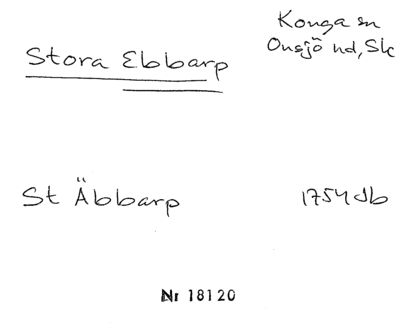 Konga sn
Onsjö hd, Sk
Stora Ebbarp
St Äbbarp
1754 Jb
Nr 18120